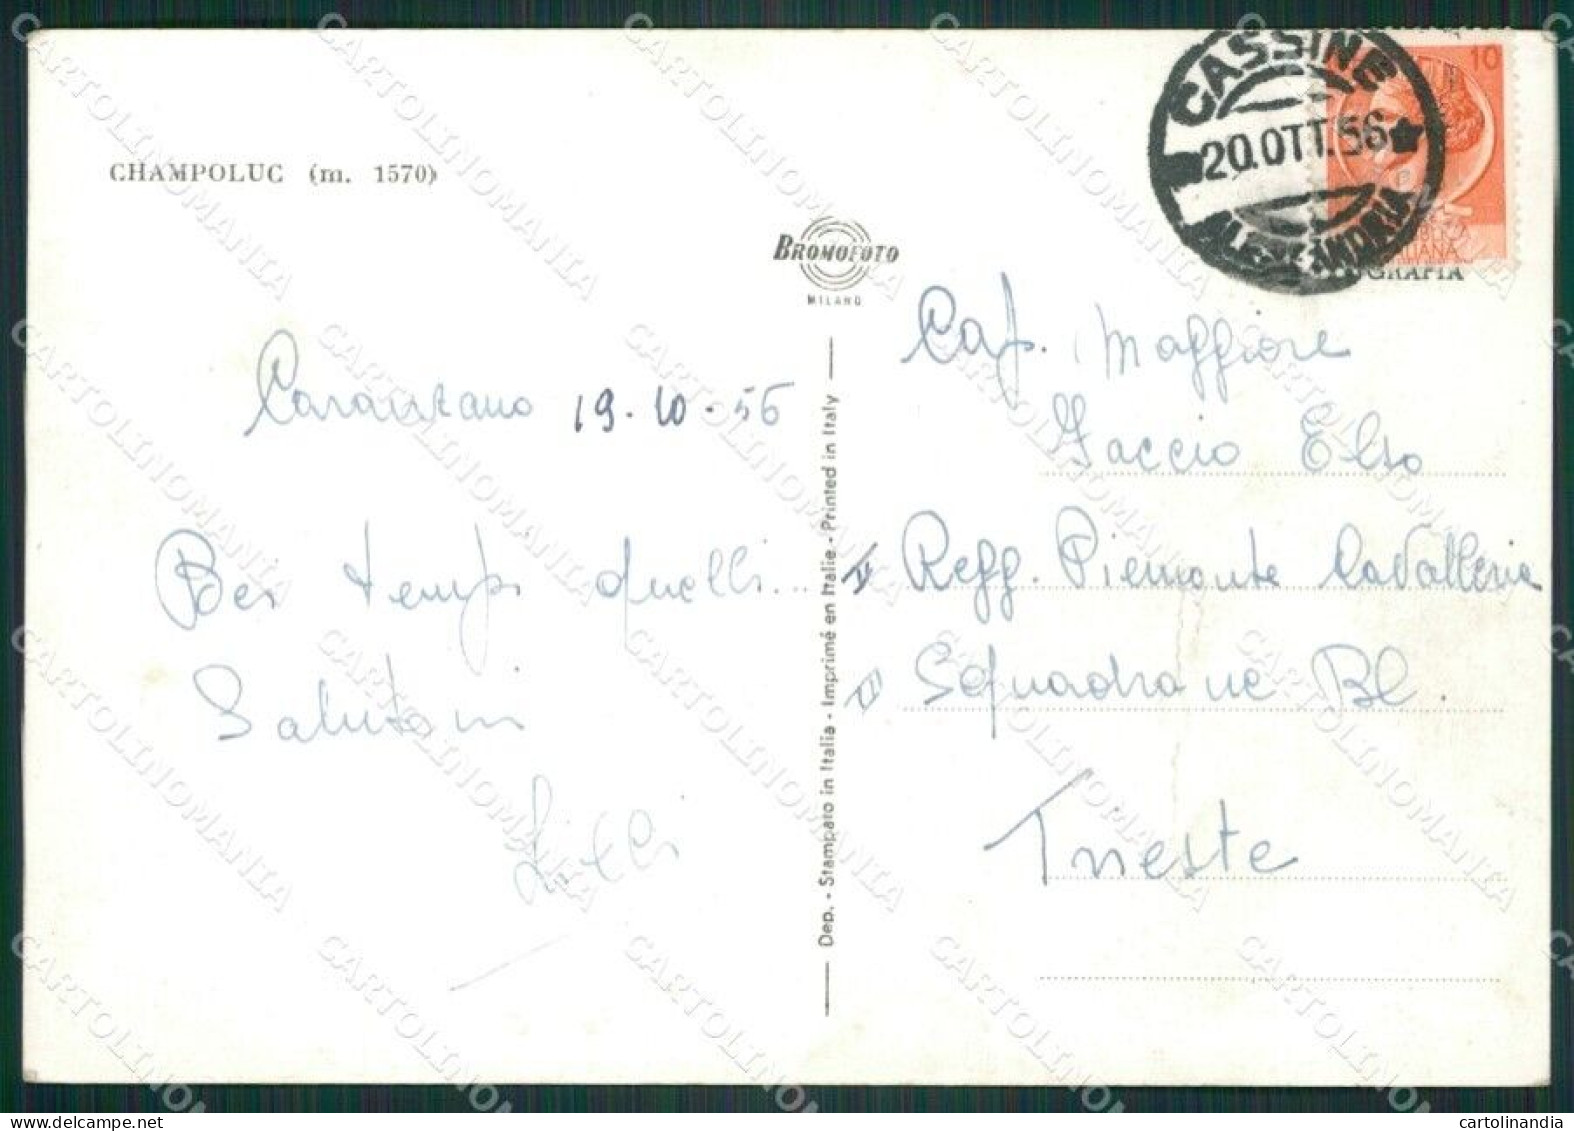 CHAMPOLUC (m. 1570)
BROMOFOTO
MILANO
CASSINE
20.OTT.56
ALESSANDRIA
10
ITALIANA
OGRAFIA
19-10-56
Bei tempi quelli...
Saluta
Lilli
Dep. - Stampato in Italia - Imprimé en Italie - Printed in Italy
Cap. Maggiore
Faccio Elso
Regg. Piemonte Cavalleria
Squadrone Bl.
Trieste
CARTOLINOMANIA
cartolinandia